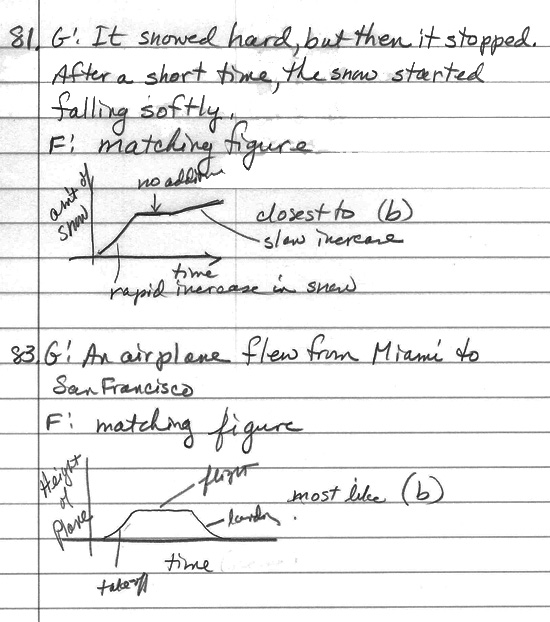 81. G: It snowed hard, but then it stopped.
After a short time, the snow started
falling softly.
F: matching figure
no addition
amt of
snow
closest to (b)
slow increase
time
rapid increase in snow
83. G: An airplane flew from Miami to
San Francisco
F: matching figure
Height
of
Plane
flight
most like (b)
landing
time
takeoff